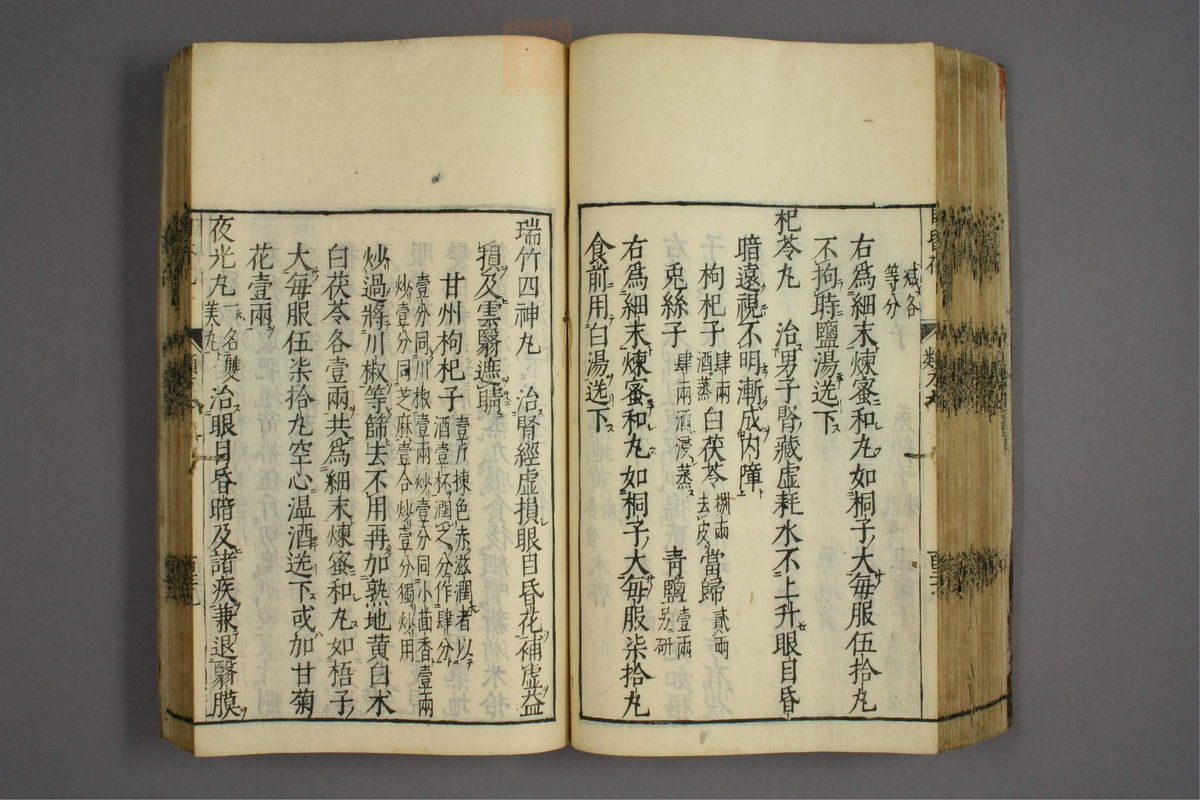 減各
等分
右爲細末煉蜜和丸如桐子大每服伍拾丸
不拘時鹽湯送下
杞苓丸　治男子腎藏虚耗水不上升眼目昏
暗遠視不明漸成内障
枸杞子肆兩酒蒸白茯苓捌兩去皮當歸貳兩
兎絲子肆兩酒浸蒸青鹽壹兩另研
右爲細末煉蜜和丸如桐子大每服柒拾丸
食前用白湯送下
瑞竹四神丸　治腎經虚損眼目昏花補虚益
損及雲翳遮睛
甘州枸杞子壹斤揀色赤滋潤者以酒壹杯潤之分作肆分
壹分同川椒壹兩炒壹分同小茴香壹兩
炒壹分同芝麻壹合炒壹分獨炒用
炒過將川椒等篩去不用再加熟地黄白朮
白茯苓各壹兩共爲細末煉蜜和丸如梧子
大每服伍柒拾丸空心温酒送下或加甘菊
花壹兩
夜光丸一名雙美丸治眼目昏暗及諸疾兼退翳膜